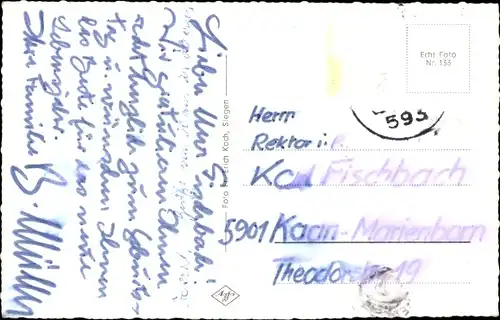 Lieber Herr Fischbach!
Wir gratulieren Ihnen
recht herzlich zum Geburts-
tag u. wünschen Ihnen
alles Gute für das neue
Lebensjahr.
Ihre Familie B. Müller
Foto Erich Koch, Siegen
Echt Foto
Nr. 133
593
Herrn
Rektor i.R.
Karl Fischbach
5901 Kaan-Marienborn
Theodorstr. 19
Agfa